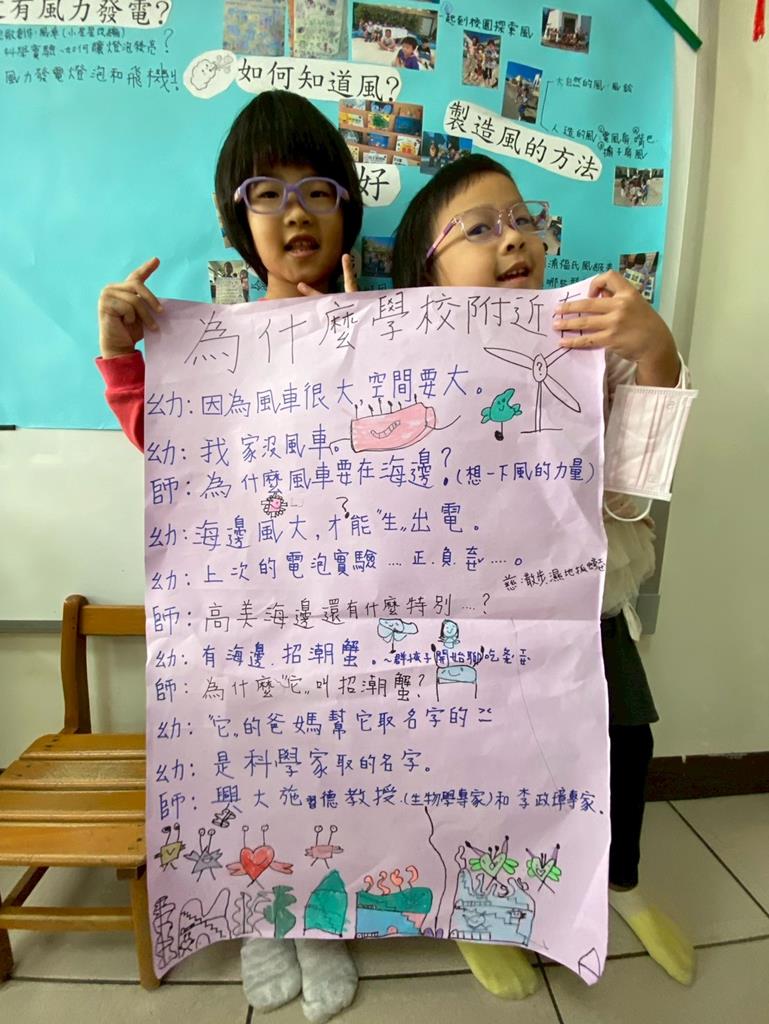 有風力發電?
科學實驗~如何讓燈泡發亮?
風力發電燈泡和飛機!!
如何知道風?
好
一起到校園探索風
製造風的方法
大自然的風:風
人造的風
為什麼學校附近有
幼:因為風車很大,空間要大。
幼:我家沒風車。
師:為什麼風車要在海邊?(想一下風的力量)
幼:海邊風大,才能"生"出電。
幼:上次的電泡實驗....正.負.....。
散步濕地抓螃蟹
師:高美海邊還有什麼特別....?
幼:有海邊.招潮蟹。~群孩子開始聊吃
師:為什麼"它"叫招潮蟹?
幼:"它"的爸媽幫它取名字的
幼:是科學家取的名字。
師:興大施習德教授.(生物學專家)和李政璋專家.